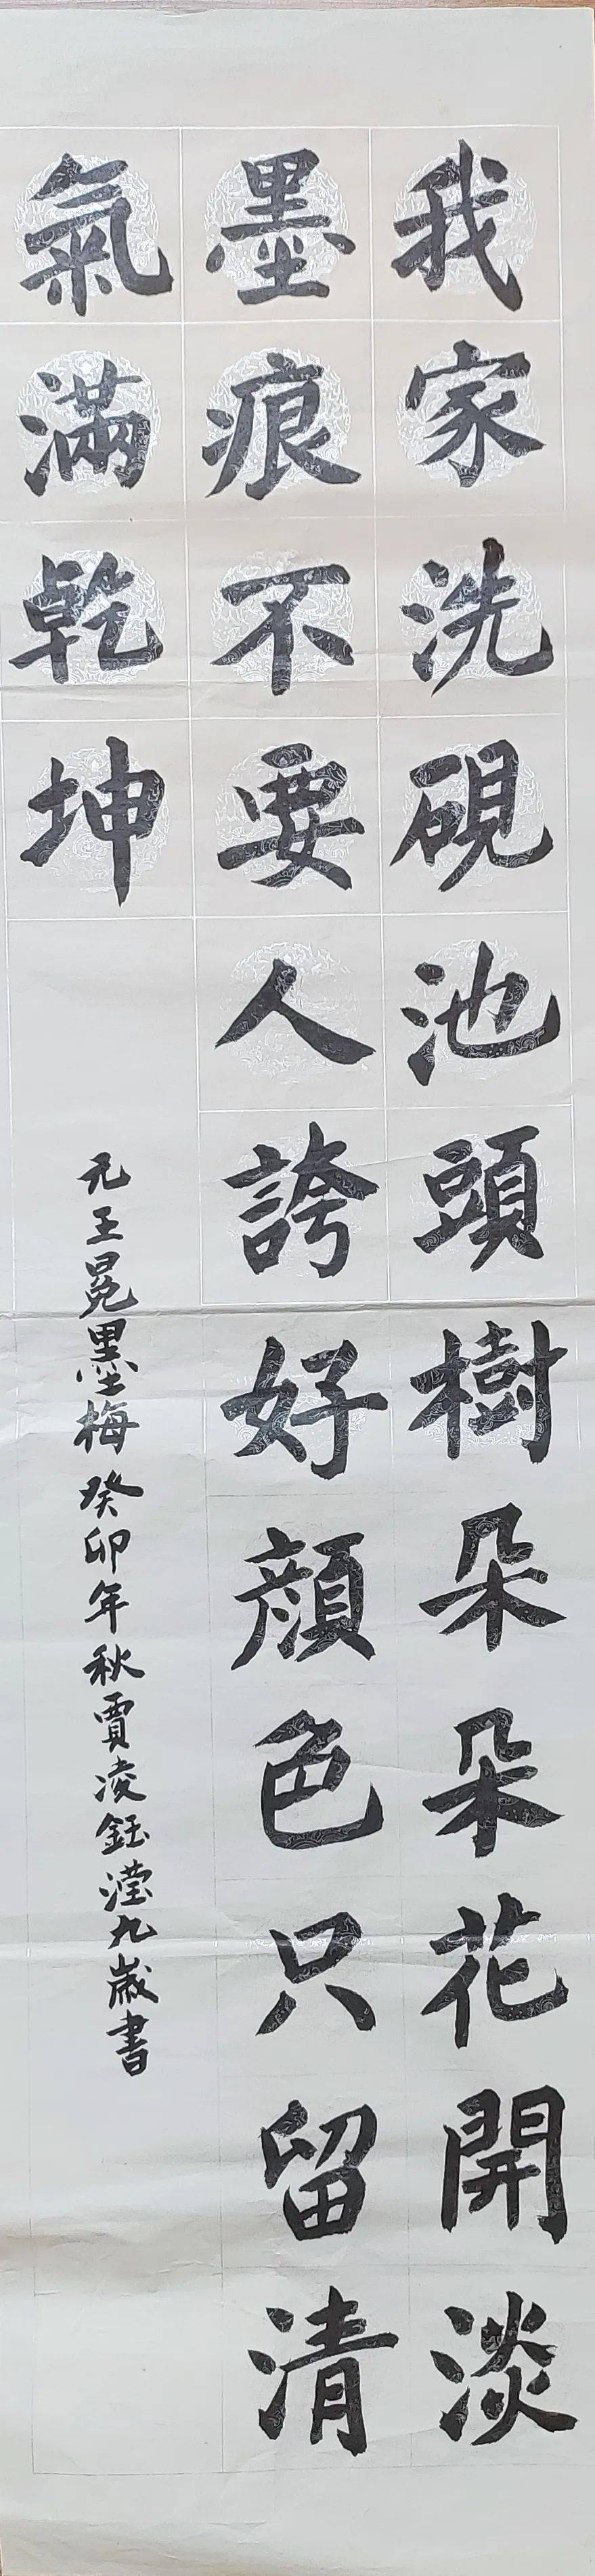 我家洗硯池頭樹朵朵花開淡
墨痕不要人誇好顔色只留清
氣滿乾坤
元王冕墨梅癸卯年秋賈凌鈺瀅九歲書